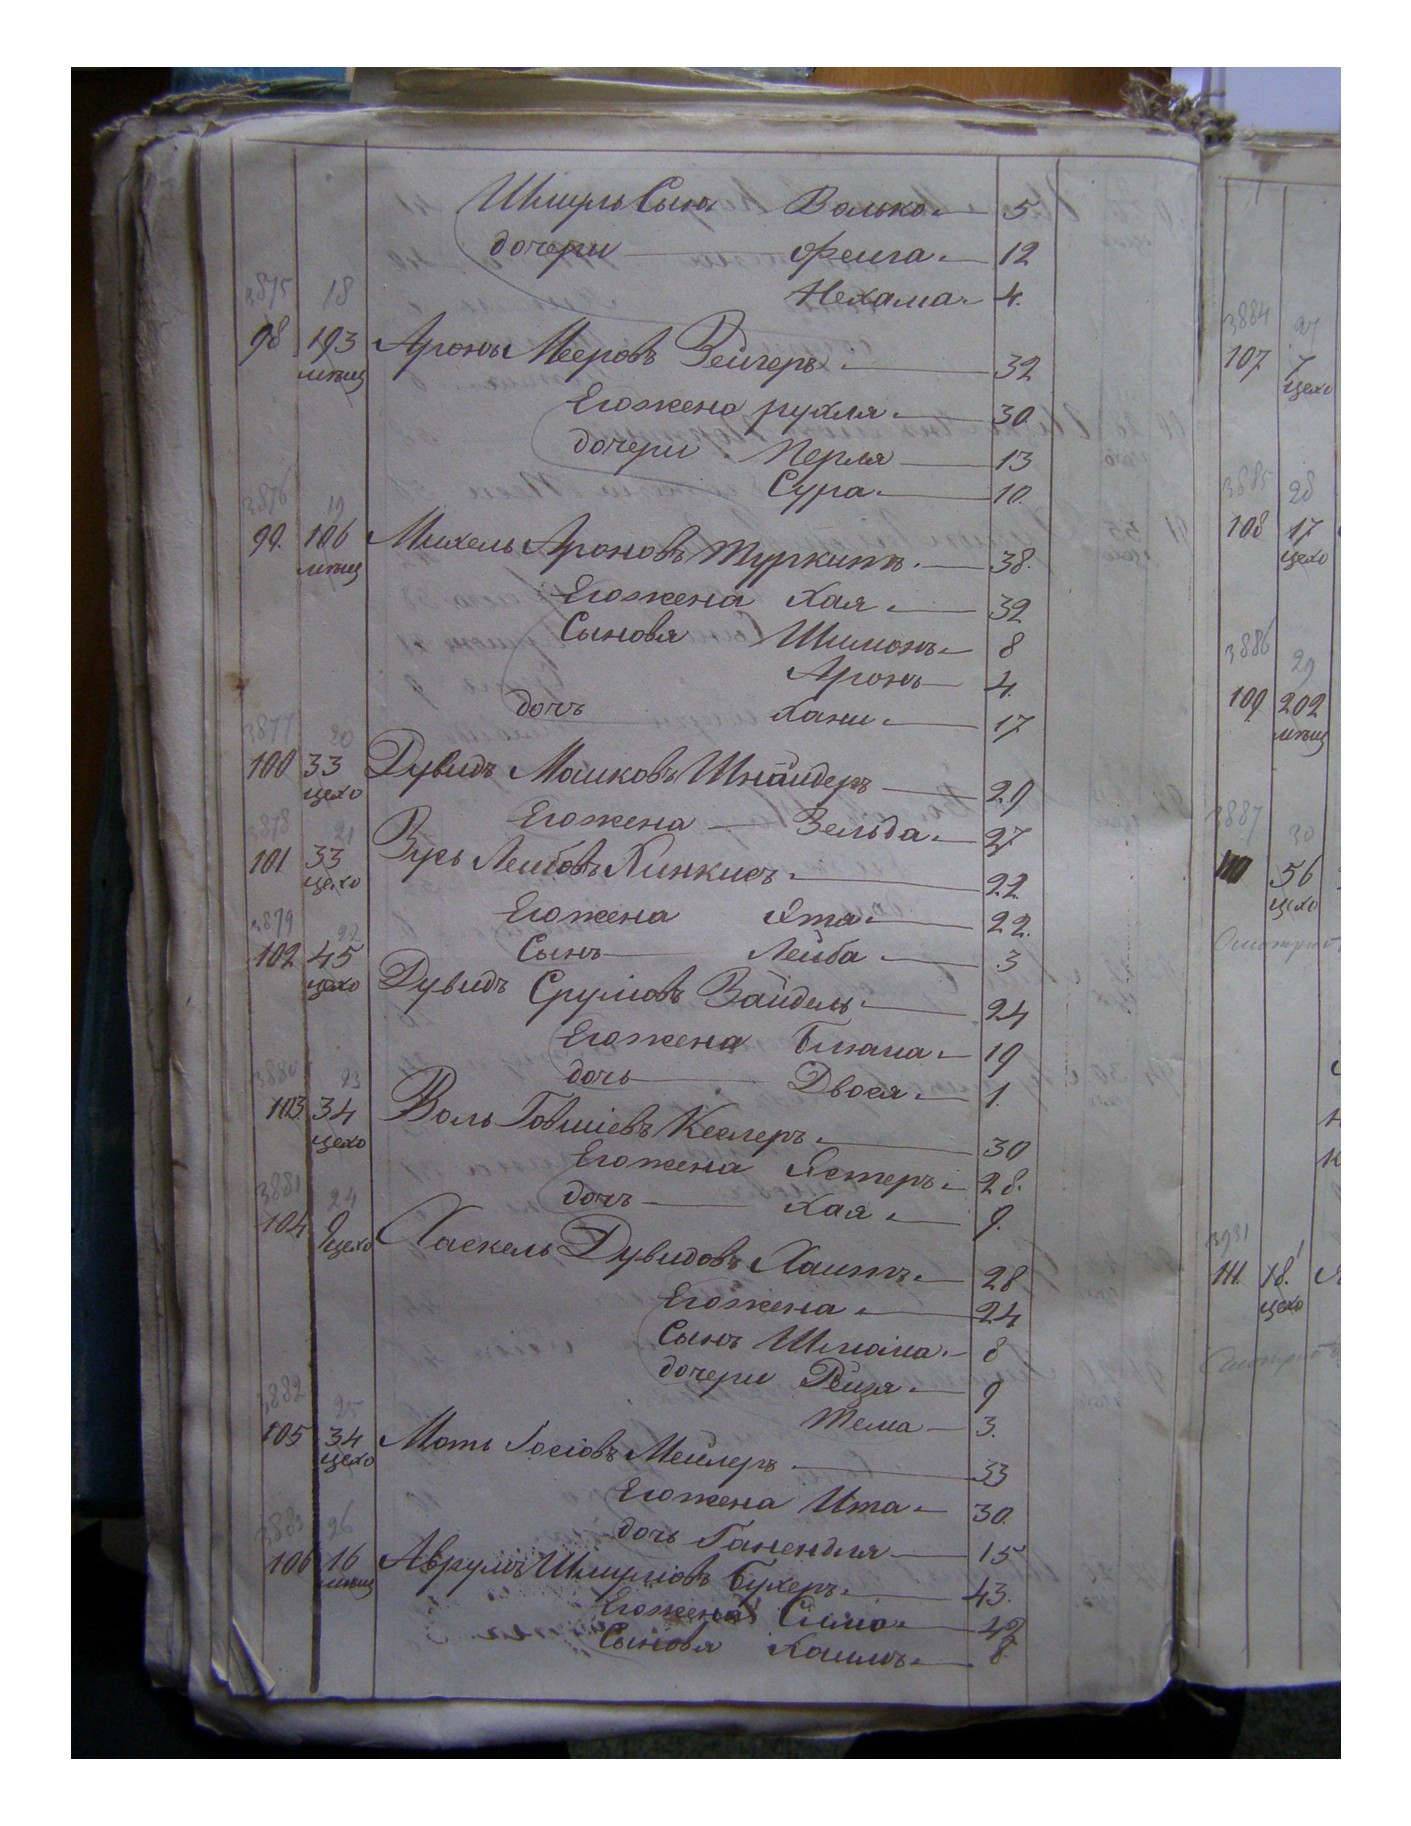 Шмуль Сынъ Волько. — 5
дочери — Феига. — 12
Нехама. — 4.
3875 18
98 193 Аронъ Мееровъ Зейгеръ. — 32
мѣщ
Егожена рухля. — 30
дочери Перля — 13
Сура. — 10.
3876 19
99. 106 Михель Ароновъ Туркитъ. — 38.
мѣщ
Егожена Хая. — 32
Сыновя Шимонъ. — 8
Аронъ — 4.
дочъ Хани. — 17
3877 20
100 33 Дувидъ Машковъ Шнайдеръ — 29
цехо
Егожена — Зельда. — 27
3878 21
101 33 Зусь Леибовъ Хинкисъ. — 22
цехо
Егожена Ята. — 22.
3879 22
Сынъ — Лейба. — 3
102 45 Дувидъ Сруліовъ Зайдель. — 24
цехо
Егожена Блюма. — 19
дочь — Двося. — 1.
3880 23
103. 34 Воль Говшіевъ Кеслеръ. — 30
цехо
Егожена Естеръ. — 28.
дочъ — Хая. — 9.
3881 24
104 9 Хаскель Дувидовъ Хаитъ. — 28
цехо
Егожена. — 24
Сынъ Шліома. — 8
дочери Рейзя. — 9
Тема — 3.
3882 25
105 34 Моть Іосіовъ Мейлеръ. — 33
цехо
Егожена Ита. — 30.
дочь Ганендля — 15
3883 26
106 16 Аврумъ Шмуліовъ Бухеръ. — 43.
мѣщ
Егожена Сима. — 42
Сыновя Хаимъ. — 8.
3884 27
107 7
цехо
3885 28
108 17
цехо
3886 29
109 202
мѣщ
3887 30
110 56
цехо
3931
111. 18.
цехо